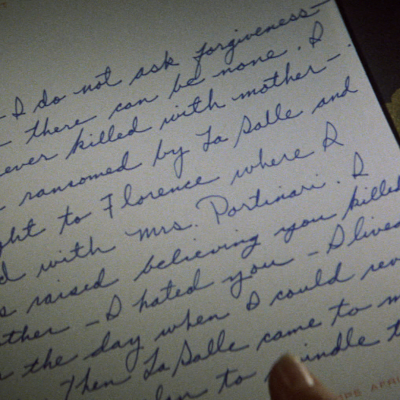 - I do not ask forgiveness -
- there can be none. I
never killed with mother -
ransomed by La Salle and
ght to Florence where I
d with Mrs. Portinari. I
s raised believing you killed
ther - I hated you - I lived
the day when I could rev
Then La Salle came to m
to kindle t